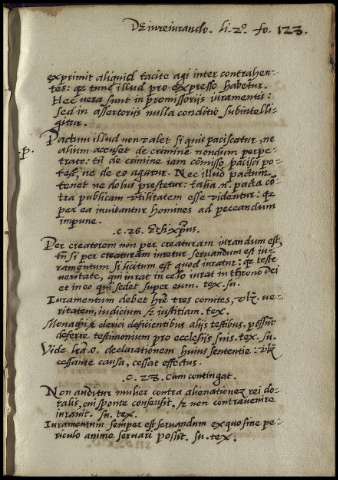 De iureiurando. li. 2º. fo. 123.
exprimit aliquid tacite agi inter contrahen-
tes: qꝫ tunc illud pro expresso habetur.
Hec vera sunt in promissoriis iuramentis:
sed in assertoriis nulla conditio subintelli-
gitur.
p. Pactum illud non valet si quis paciscatur, ne
alium accuset de crimine nondum perpe-
trato: tñ de crimine iam cõmisso pacisci po-
test, ne de eo agatur. Nec illud pactum
tenet ne dolus prestetur: talia n. pacta cõ-
tra publicam utilitatem esse videntur: qꝫ
per ea invitantur homines ad peccandum
impune.
.c. 26. Et si xp̃us.
Per creatorem non per creaturam iurandum est,
tñ si per creaturam iuretur servandum est iu-
ramentum si licitum est quod iuratur: qꝫ teste
veritate, qui iurat in celo iurat in throno dei
et in eo qui sedet super eum. tex. su.
Iuramentum debet hr̃e tres comites, vꝫ. ve-
ritatem, iudicium, & iustitiam. tex.
Monachi & clerici deficientibus aliis testibus, possũt
deferre testimonium pro ecclesiis suis. tex. su.
Vide declarationem huius sententie. vꝫ
cessante causa, cessat effectus.
.c. 28. Cum contingat.
Non auditur mulier contra alienationem rei do-
talis, cui sponte consensit, & non contravenire
iuravit. su. tex.
Iuramentum semper est servandum ex quo sine pe-
riculo anime servari possit. su. tex.